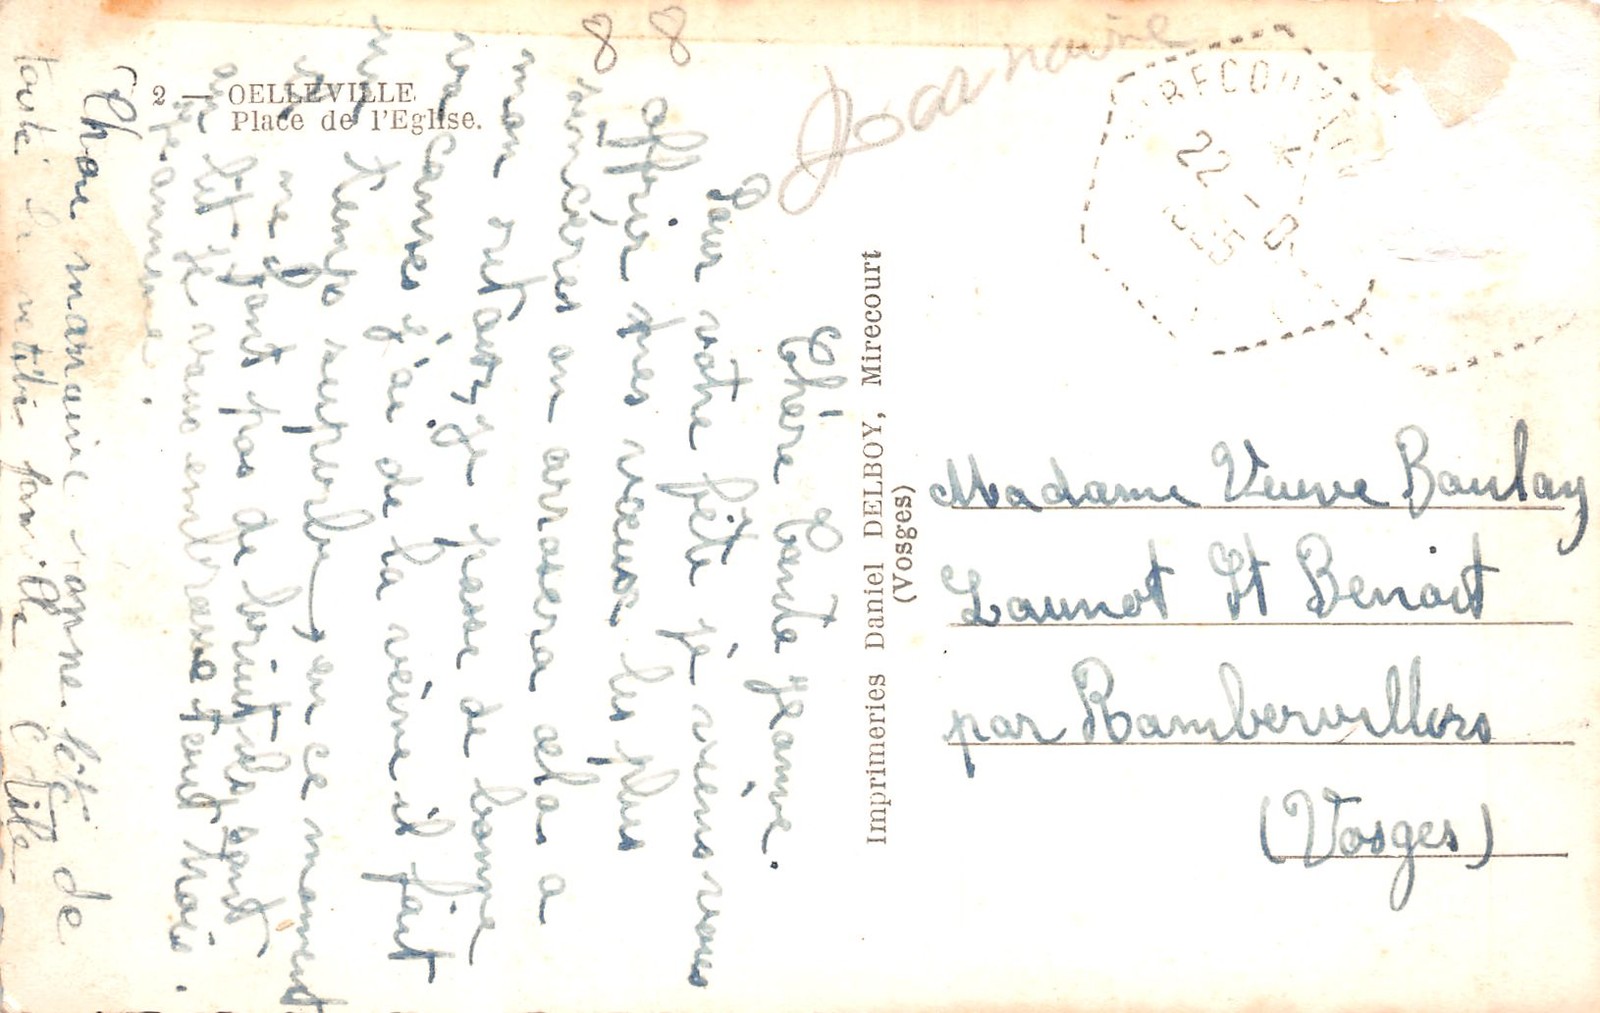 2 — OELLEVILLE
Place de l'Eglise.
Imprimeries Daniel DELBOY, Mirecourt
(Vosges)
22 -8
Madame Veuve Boulay
Launot St Benoit
par Rambervillers
(Vosges)
Chère tante Jeanne.
Pour votre fête je viens vous
offrir mes vœux les plus
sincères on arrosera cela a
mon retour, je passe de bonne
vacances j'ai de la veine il fait
un temps superbe, en ce moment
ne font pas de bruit ils sont
au lit je vous embrasse tout trois.
Jeannine.
Chère marraine bonne fête de
toute la petite famille